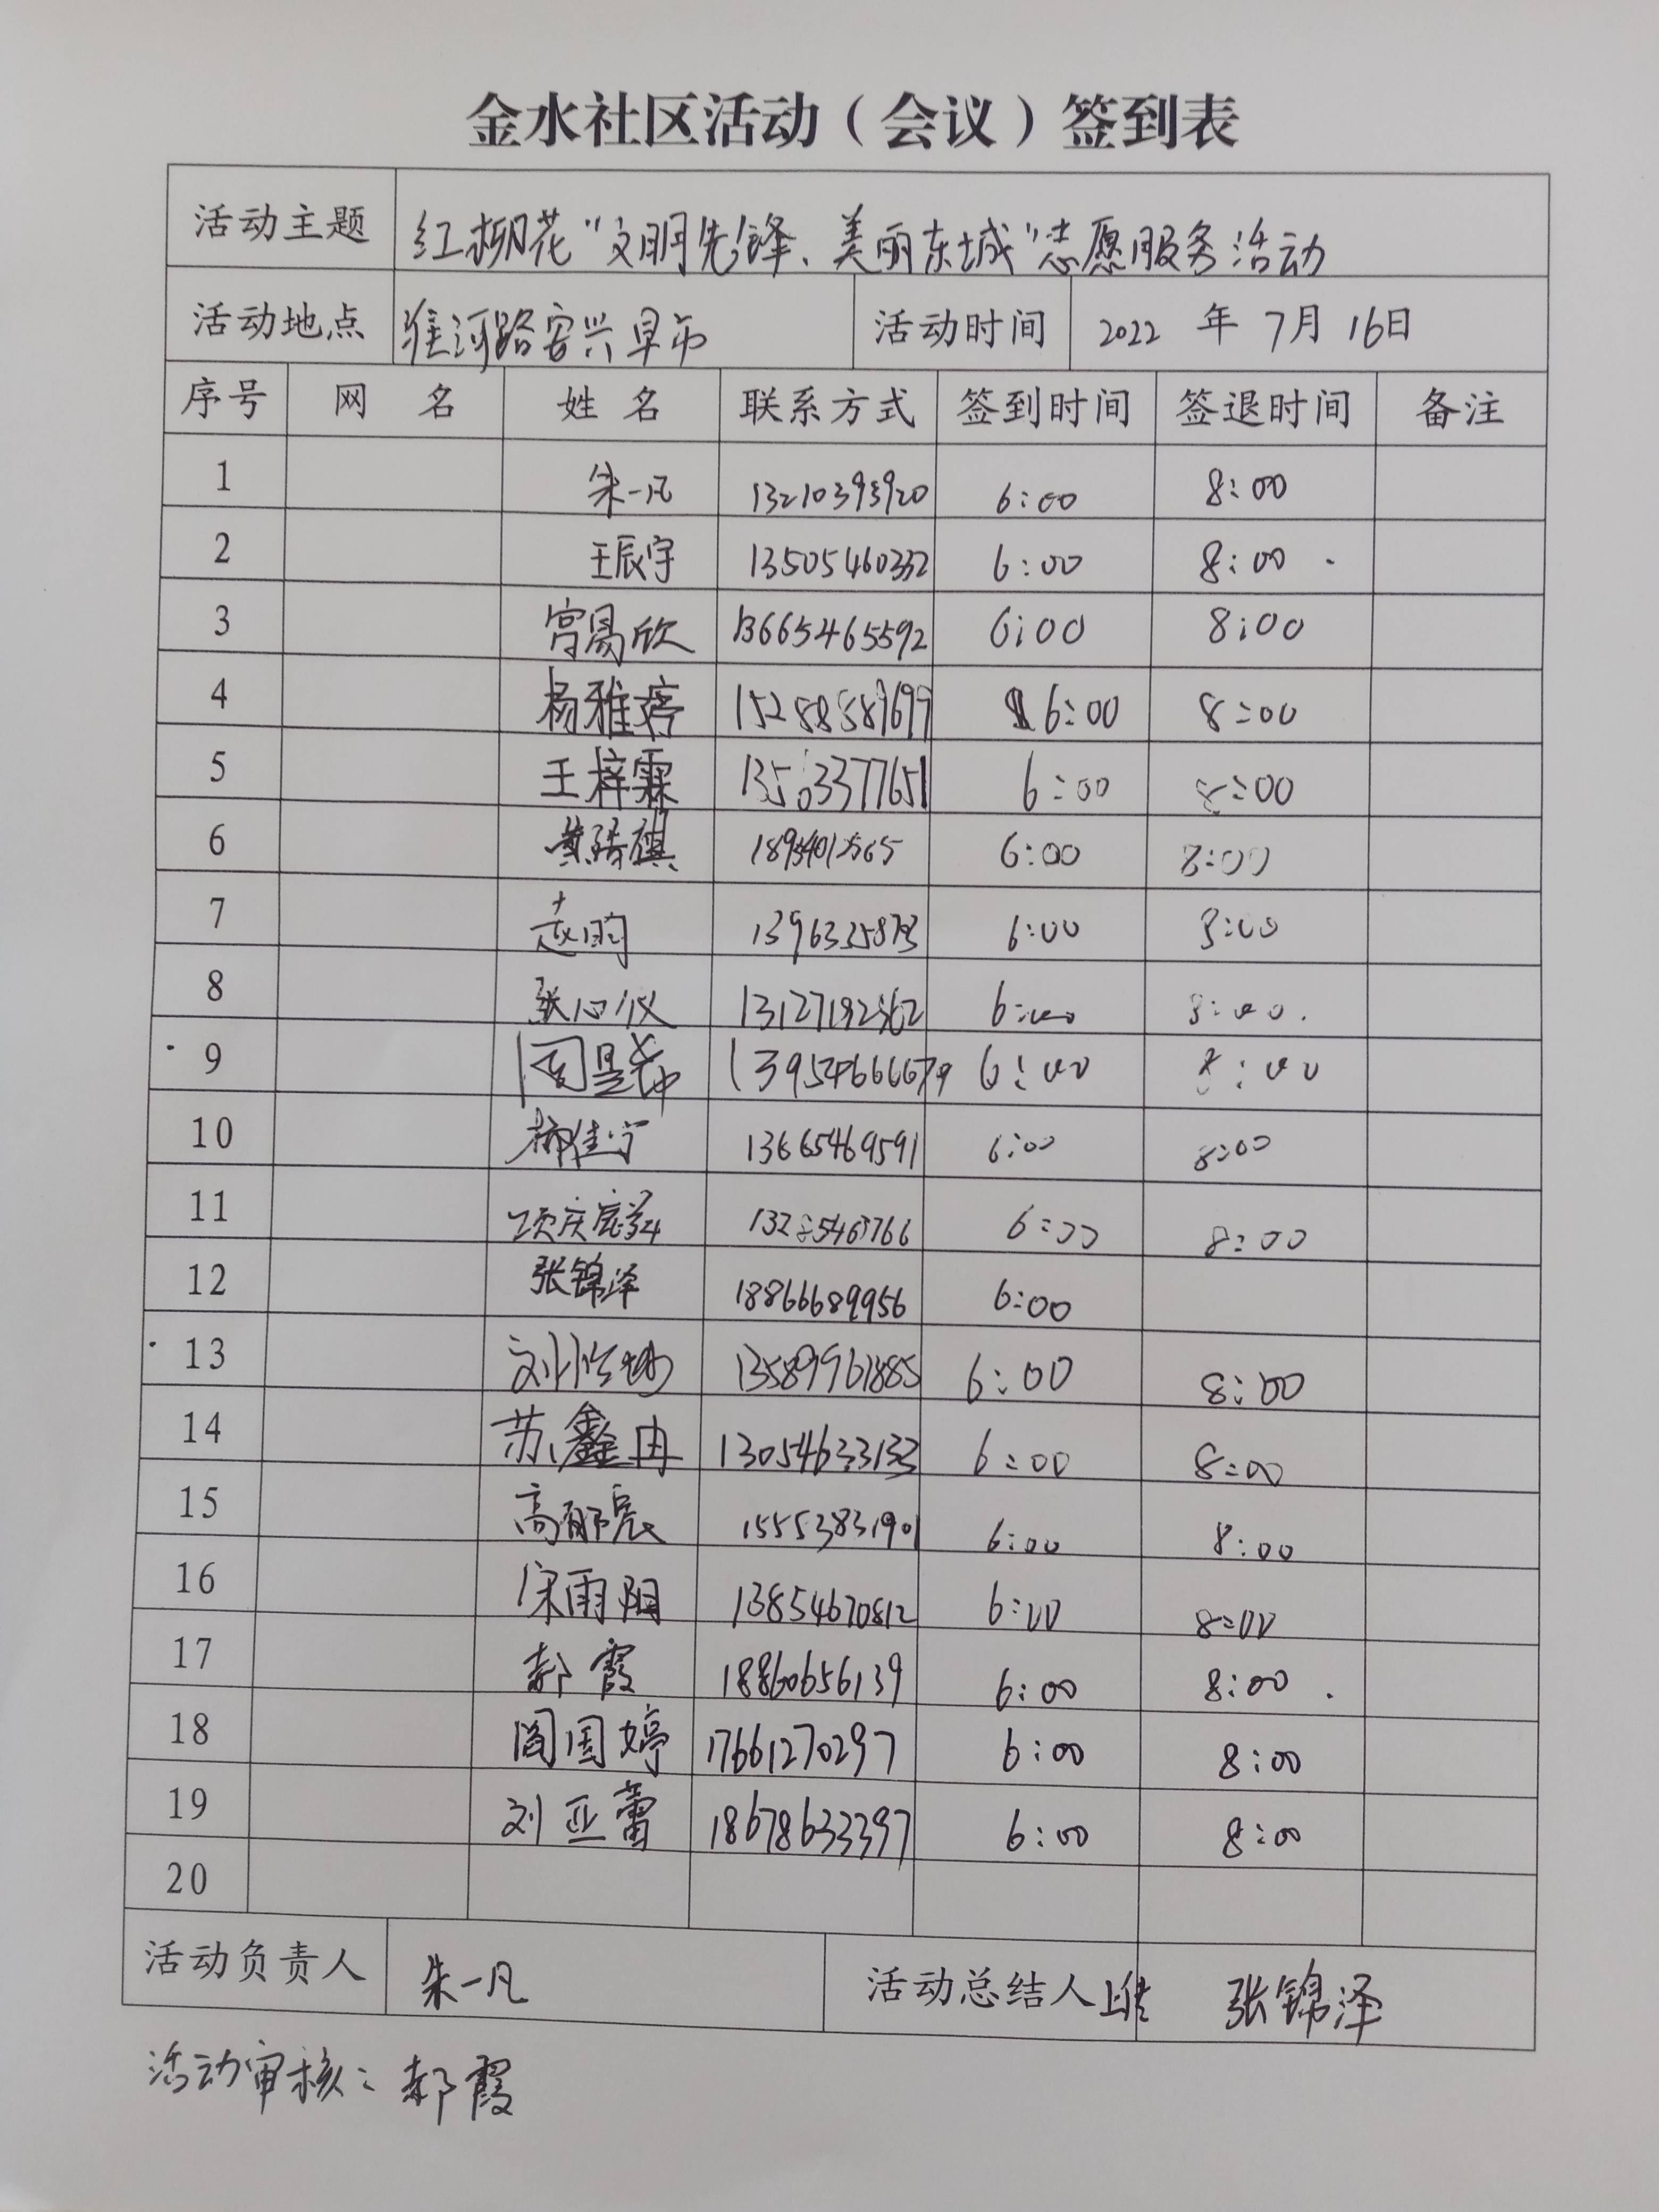 金水社区活动（会议）签到表
活动主题 红柳花“文明先锋、美丽东城”志愿服务活动
活动地点 淮河路客兴早市 活动时间 2022 年 7月 16日
序号 网 名 姓 名 联系方式 签到时间 签退时间 备注
1 朱一凡 13210393920 6:00 8:00
2 王辰宇 13505460332 6:00 8:00
3 宫勗欣 13665465592 6:00 8:00
4 杨雅婷 15288589699 6:00 8:00
5 王梓霖 6:00 8:00
6 6:00 8:00
7 赵昀 6:00 8:00
8 张心仪 13127192362 6:00 8:00
9 6:00 8:00
10 柳佳宁 13665469591 6:00 8:00
11 6:00 8:00
12 张锦泽 18866689956 6:00
13 13589961885 6:00 8:00
14 苏鑫冉 13054633133 6:00 8:00
15 15553831901 6:00 8:00
16 宋雨阳 13854670812 6:00 8:00
17 郝霞 18860656139 6:00 8:00
18 阎国婷 17661270297 6:00 8:00
19 刘亚蕾 18678633397 6:00 8:00
20
活动负责人 朱一凡 活动总结人上传 张锦泽
活动审核：郝霞